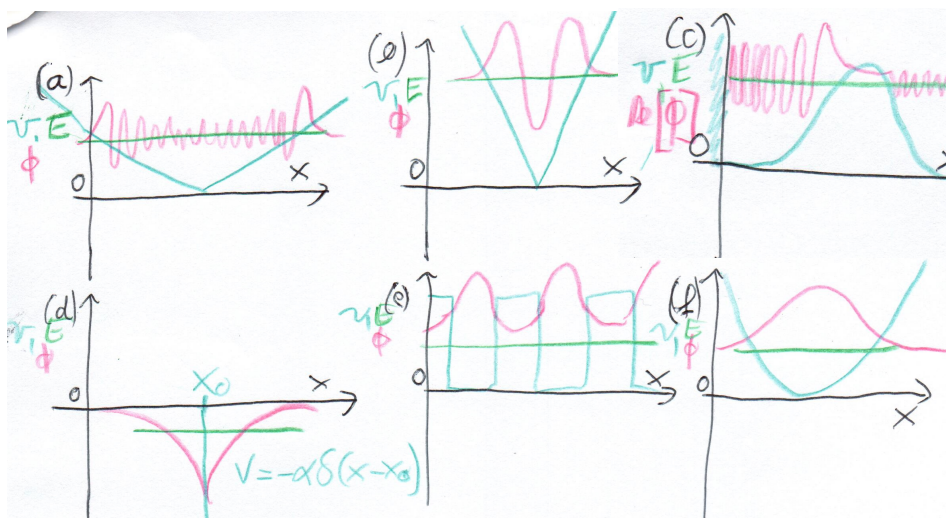 (a)
V, E
ϕ
0
x
(e)
V, E
ϕ
0
x
(c)
V, E
Re[ϕ]
0
x
(d)
V, E
ϕ
0
x₀
x
V=-αδ(x-x₀)
(e)
V, E
ϕ
0
x
(f)
V, E
ϕ
0
x